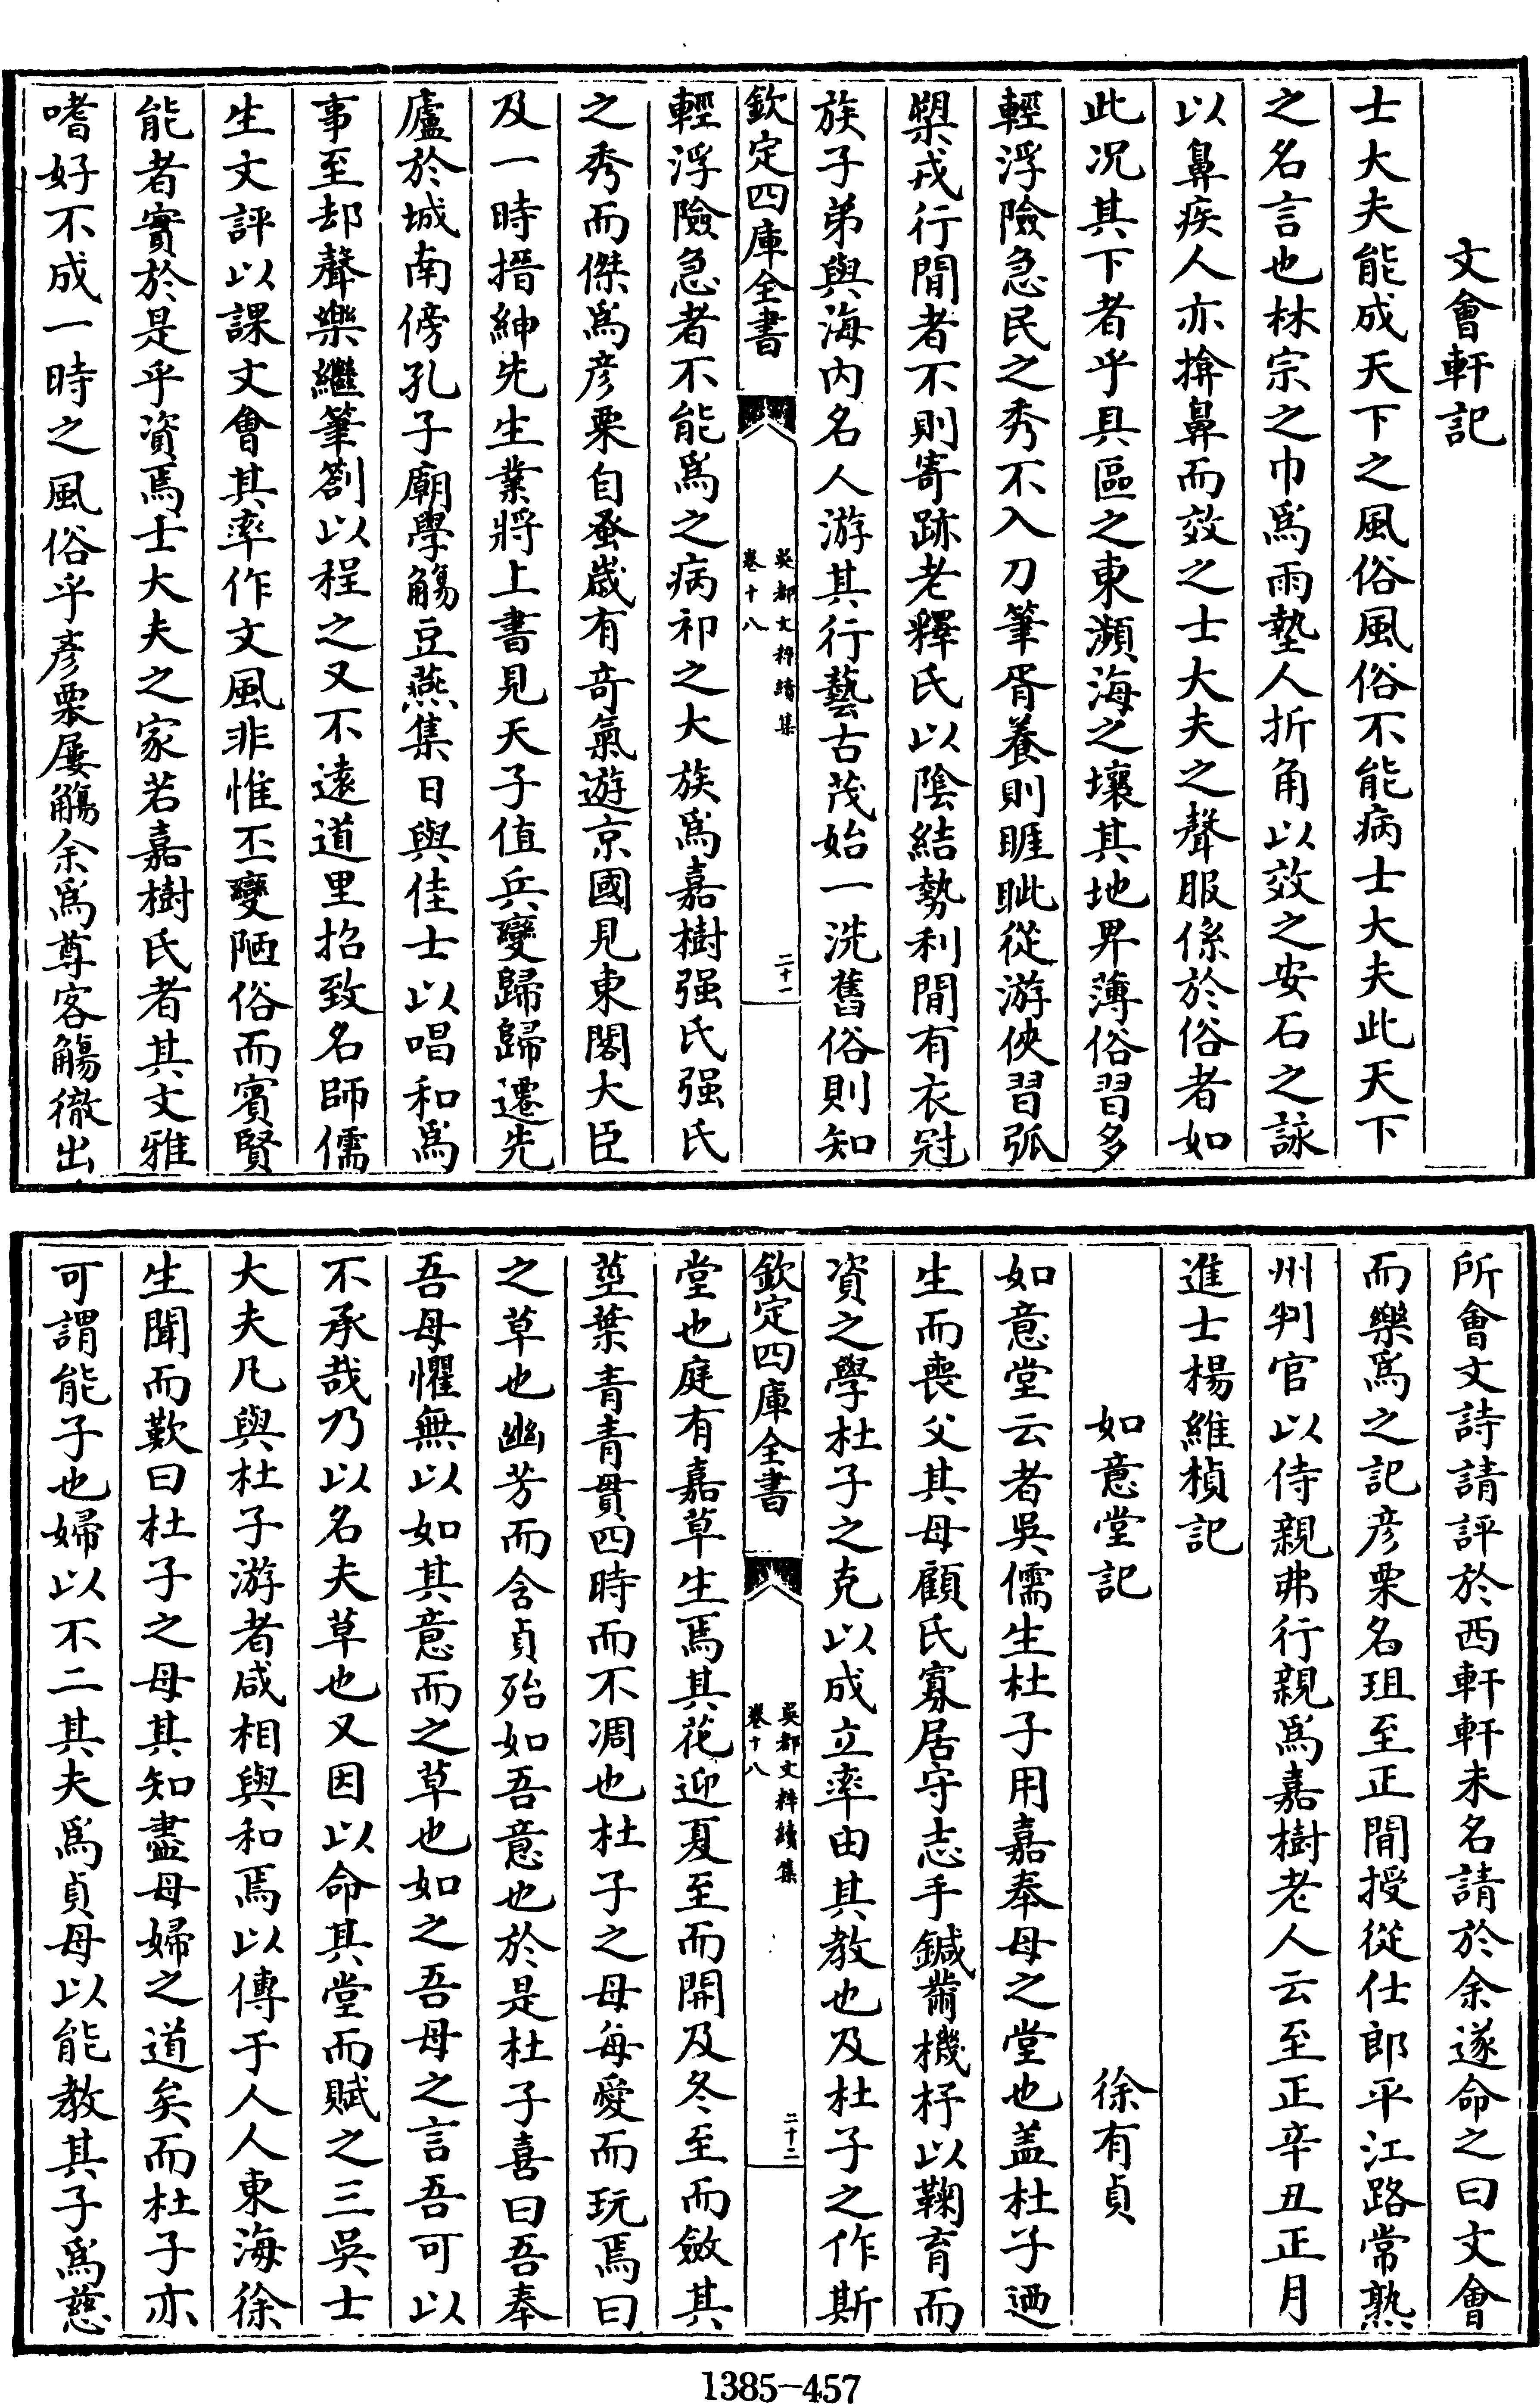 文會軒記
士大夫能成天下之風俗風俗不能病士大夫此天下
之名言也林宗之巾爲雨墊人折角以效之安石之詠
以鼻疾人亦揜鼻而效之士大夫之聲服係於俗者如
此况其下者乎具區之東瀕海之壤其地畀薄俗習多
輕浮險急民之秀不入刀筆胥養則睚眦從游俠習弧
槊戎行間者不則寄跡老釋氏以陰結勢利間有衣冠
族子弟與海内名人游其行藝古茂始一洗舊俗則知
欽定四庫全書
吳都文粹續集
卷十八
二十一
輕浮險急者不能爲之病祁之大族爲嘉樹强氏强氏
之秀而傑爲彦栗自蚤歲有竒氣遊京國見東閣大臣
及一時搢紳先生業將上書見天子值兵變歸歸遷先
廬於城南傍孔子廟學觴豆燕集日與佳士以唱和爲
事至却聲樂繼筆劄以程之又不遠道里招致名師儒
生文評以課文會其率作文風非惟丕變陋俗而賓賢
能者實於是乎資焉士大夫之家若嘉樹氏者其文雅
嗜好不成一時之風俗乎彦栗屢觴余爲尊客觴徹出
所會文詩請評於西軒軒未名請於余遂命之曰文會
而樂爲之記彦栗名珇至正間授從仕郎平江路常熟
州判官以侍親弗行親爲嘉樹老人云至正辛丑正月
進士楊維楨記
如意堂記
徐有貞
如意堂云者吳儒生杜子用嘉奉母之堂也盖杜子迺
生而喪父其母顧氏寡居守志手鍼黹機杼以鞠育而
資之學杜子之克以成立率由其教也及杜子之作斯
欽定四庫全書
吳都文粹續集
卷十八
二十二
堂也庭有嘉草生焉其花迎夏至而開及冬至而斂其
莖葉青青貫四時而不凋也杜子之母每愛而玩焉曰
之草也幽芳而含貞殆如吾意也於是杜子喜曰吾奉
吾母懼無以如其意而之草也如之吾母之言吾可以
不承哉乃以名夫草也又因以命其堂而賦之三吳士
大夫凡與杜子游者咸相與和焉以傳于人人東海徐
生聞而歎曰杜子之母其知盡母婦之道矣而杜子亦
可謂能子也婦以不二其夫爲貞母以能教其子爲慈
1385-457